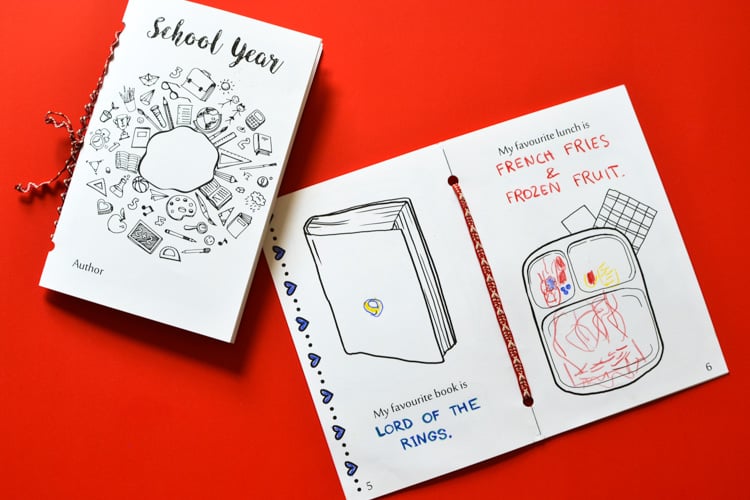 School Year
Author
My favourite book is
LORD OF THE
RINGS.
5
My favourite lunch is
FRENCH FRIES
&
FROZEN FRUIT.
6